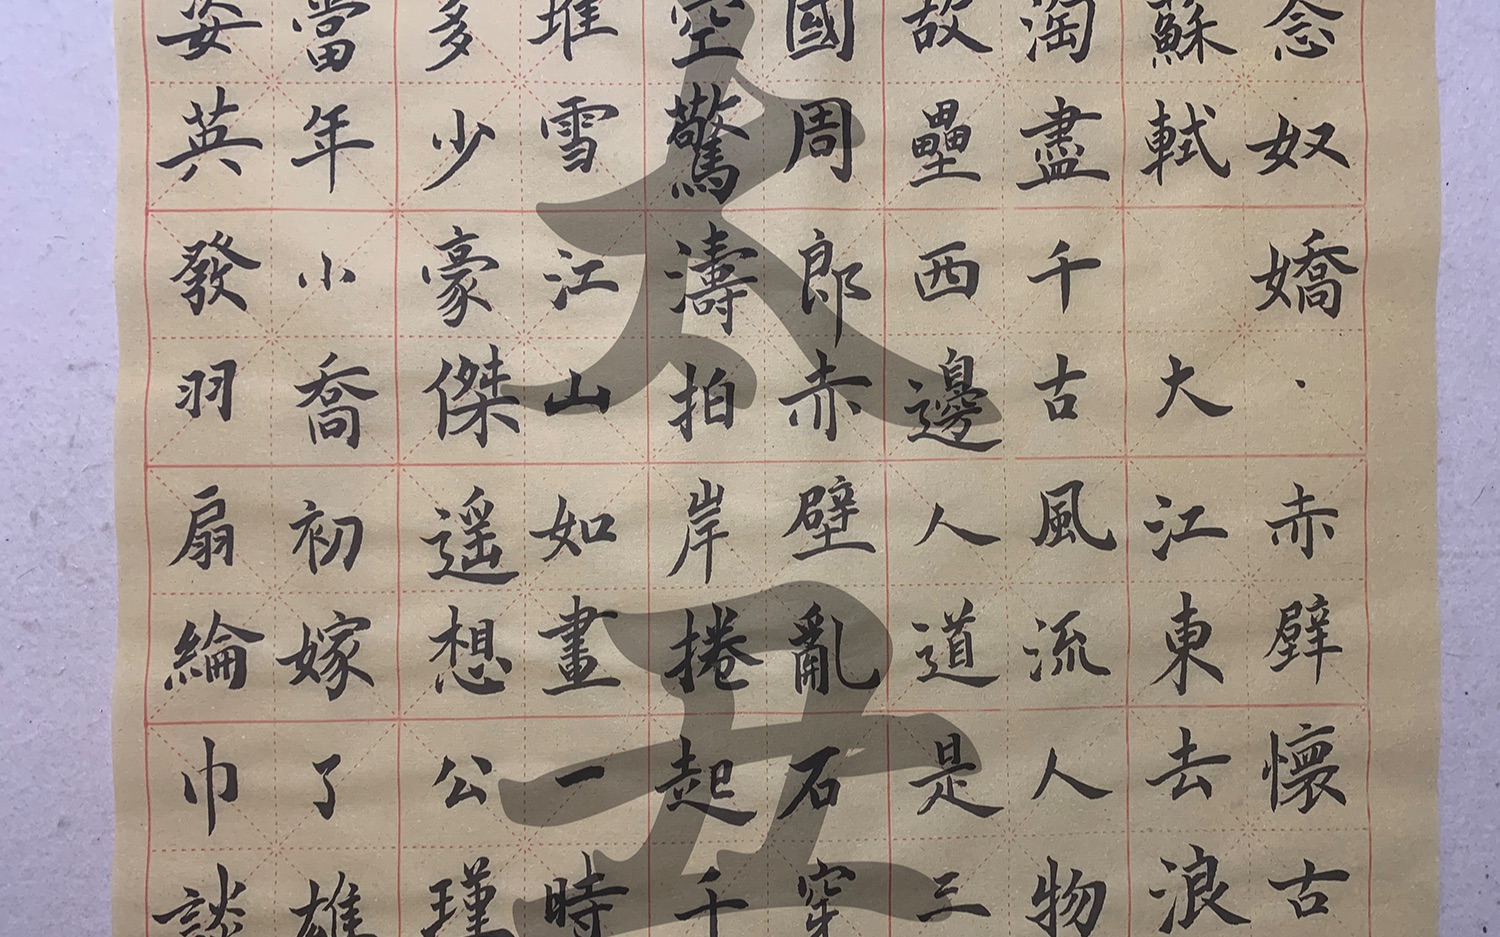 念奴嬌·赤壁懷古
蘇軾 大江東去浪
淘盡千古風流人物
故壘西邊人道是三
國周郎赤壁亂石穿
空驚濤拍岸捲起千
堆雪江山如畫一時
多少豪傑遥想公瑾
當年小喬初嫁了雄
姿英發羽扇綸巾談
太丑